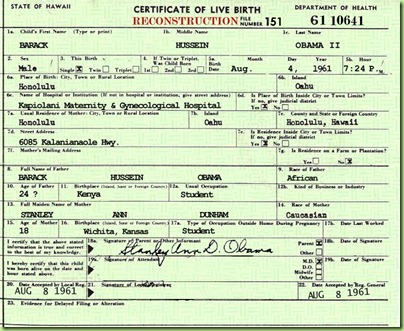 STATE OF HAWAII CERTIFICATE OF LIVE BIRTH DEPARTMENT OF HEALTH
RECONSTRUCTION FILE NUMBER 151 61 10641
1a. Child's First Name (Type or print) 1b. Middle Name 1c. Last Name
BARACK HUSSEIN OBAMA II
2. Sex 3. This Birth 4. If Twin or Triplet, Was Child Born 5a. Birth Date Month Day Year 5b. Hour
Male Single X Twin Triplet 1st 2nd 3rd Aug. 4, 1961 7:24 P.M.
6a. Place of Birth: City, Town or Rural Location 6b. Island
Honolulu Oahu
6c. Name of Hospital or Institution (If not in hospital or institution, give street address) 6d. Is Place of Birth Inside City or Town Limits? If no, give judicial district
Kapiolani Maternity & Gynecological Hospital Yes X No
7a. Usual Residence of Mother: City, Town or Rural Location 7b. Island 7c. County and State or Foreign Country
Honolulu Oahu Honolulu, Hawaii
7d. Street Address 7e. Is Residence Inside City or Town Limits? If no, give judicial district
6085 Kalanianaole Hwy. Yes X No
7f. Mother's Mailing Address 7g. Is Residence on a Farm or Plantation?
Yes No X
8. Full Name of Father 9. Race of Father
BARACK HUSSEIN OBAMA African
10. Age of Father 11. Birthplace (Island, State or Foreign Country) 12a. Usual Occupation 12b. Kind of Business or Industry
24 ? Kenya Student
13. Full Maiden Name of Mother 14. Race of Mother
STANLEY ANN DUNHAM Caucasian
15. Age of Mother 16. Birthplace (Island, State or Foreign Country) 17a. Type of Occupation Outside Home During Pregnancy 17b. Date Last Worked
18 Wichita, Kansas Student
I certify that the above stated information is true and correct to the best of my knowledge. 18a. Signature of Parent or Other Informant Parent X Other 18b. Date of Signature
Stanley Ann D. Obama
I hereby certify that this child was born alive on the date and hour stated above. 19a. Signature of Attendant M.D. X D.O. Midwife Other 19b. Date of Signature
20. Date Accepted by Local Reg. 21. Signature of Local 22. Date Accepted by Reg. General
AUG 8 1961 AUG 8 1961
23. Evidence for Delayed Filing or Alteration